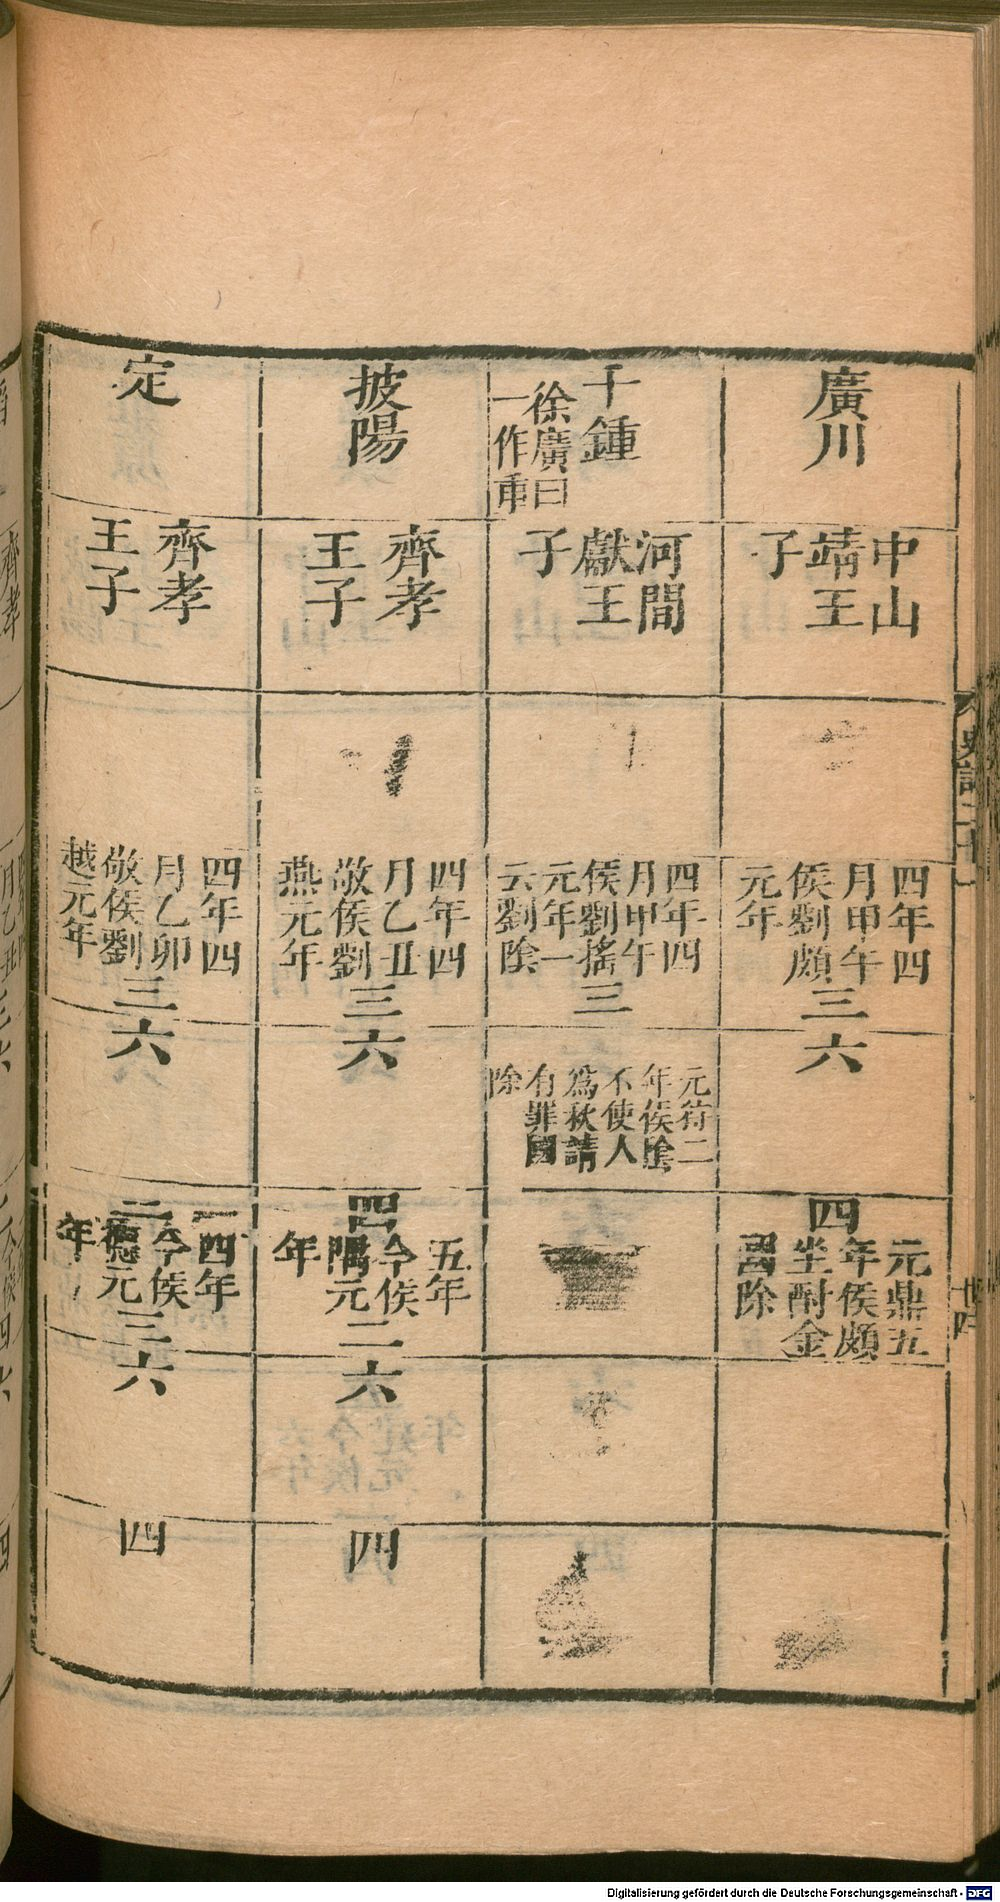 廣川
中山
靖王
子
四年四
月甲午
侯劉頗
元年
三
六
四
元鼎五
年侯頗
坐酎金
國除
千鍾
徐廣曰
一作重
河間
獻王
子
四年四
月甲午
侯劉搖
元年一
云劉陰
三
元符二
年侯陰
不使人
爲秋請
有罪國
除
披陽
齊孝
王子
四年四
月乙丑
敬侯劉
燕元年
三
六
四
五年
今侯
隅元
年
二
六
四
定
齊孝
王子
四年四
月乙卯
敬侯劉
越元年
三
六
三
四年
今侯
德元
年
三
六
四
史記二十一
廿四
Digitalisierung gefördert durch die Deutsche Forschungsgemeinschaft - DFG